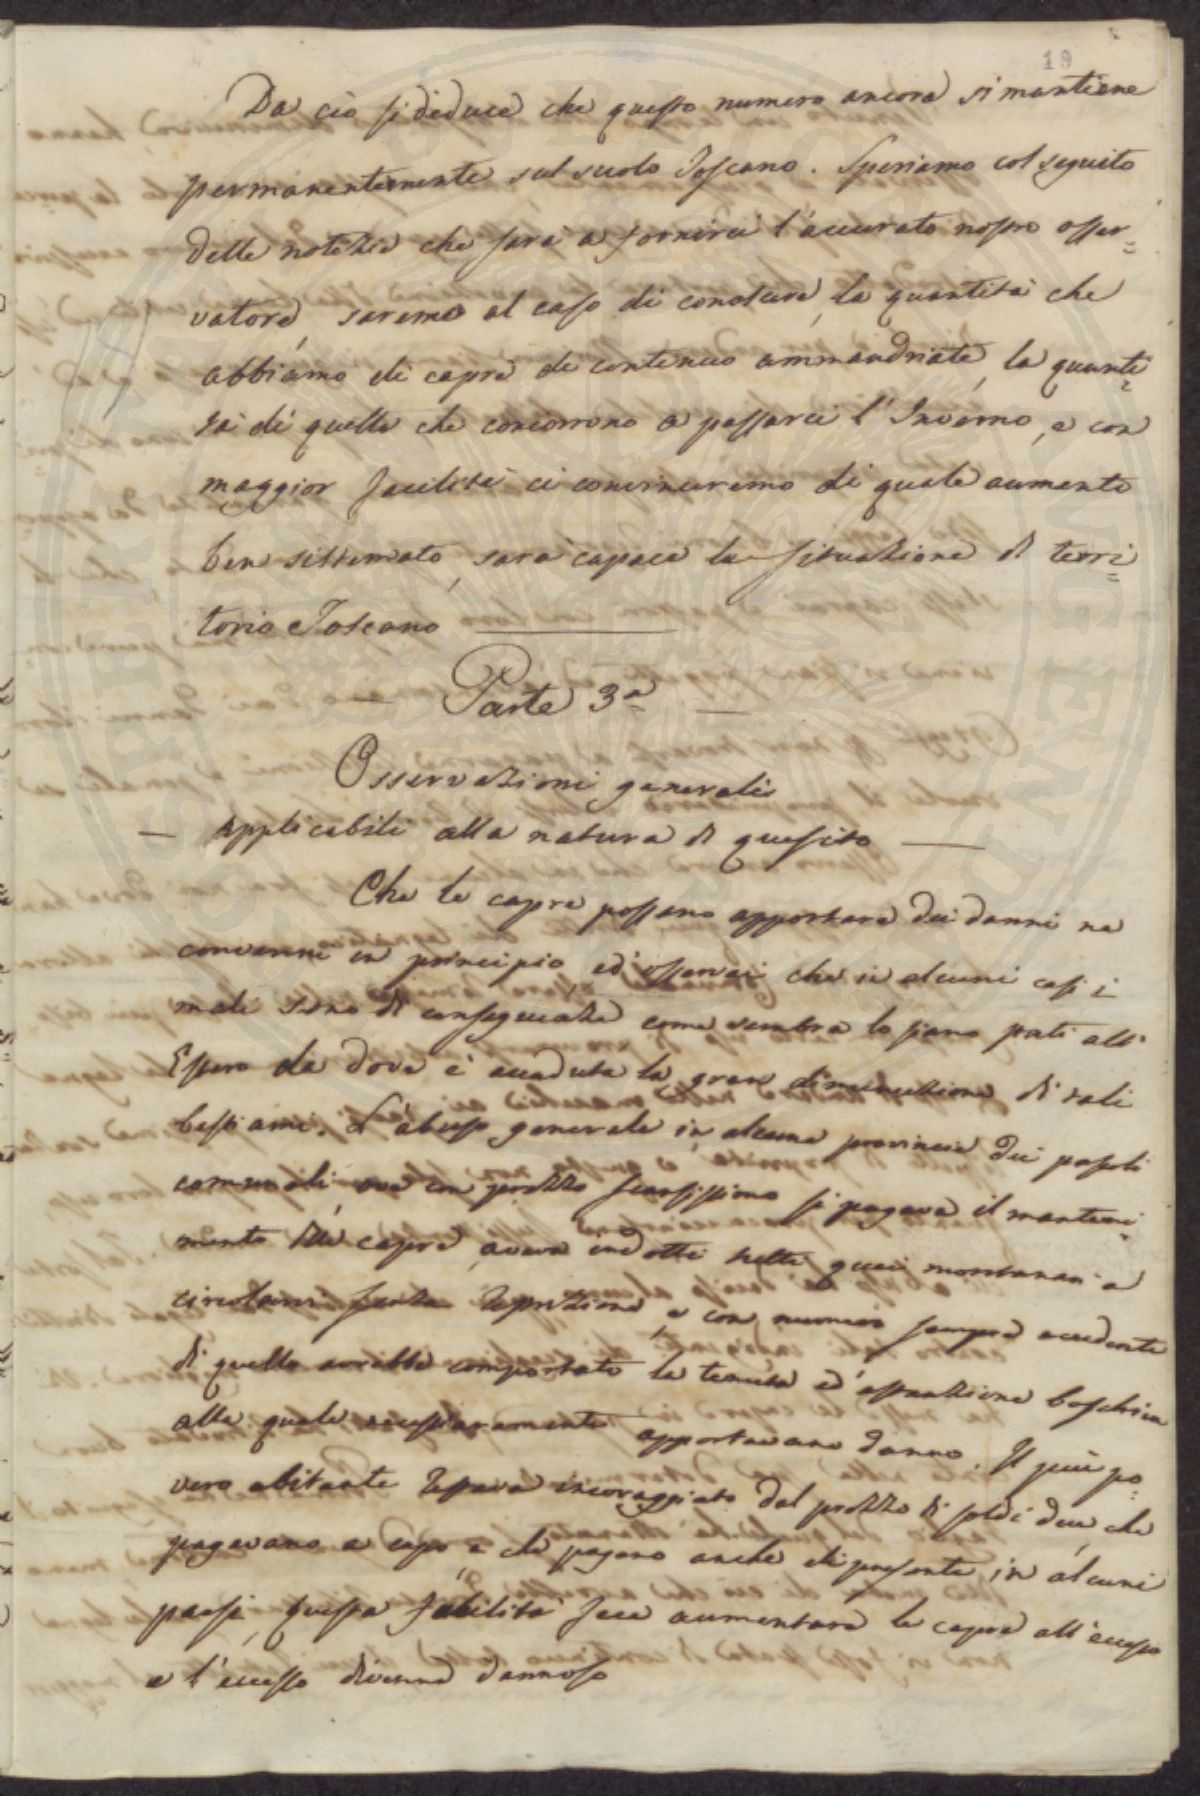 19
Da ciò si deduce che questo numero ancora si mantiene
permanentemente sul suolo Toscano. Speriamo col seguito
delle notizie che sarà a fornirci l'accurato nostro osser=
vatore, saremo al caso di conoscere, la quantità che
abbiamo di capre di continuo ammandriate, la quanti=
tà di quelle che concorrono a passarci l'Inverno, e con
maggior facilità ci convinceremo di quale aumento
ben sistemato, sarà capace la situazione di terri=
torio Toscano
Parte 3ª
Osservazioni generali
Applicabili alla natura di quesito
Che le capre possano apportare dei danni ne
convenni in principio ed'osservai che in alcuni casi i
mali sono di conseguenza come sembra lo siano stati all'
Estero da dove è accaduta la gran diminuzione di tali
bestiami. L'abuso generale in alcune provincie dei pascoli
comunali, ove con prezzo scarsissimo si pagava il manteni=
mento delle capre, aveva indotti quei montanari a
circolarvi senza restrizione, e con numero sempre eccedente
di quello avrebbe comportato la tenuta ed'estensione boschiva
alle quale necessariamente apportavano danno. Il più po=
vero abitante restava incoraggiato dal prezzo di soldi due, che
pagavano a capo e che pagano anche di presente, in alcuni
paesi, questa facilità fece aumentare le capre all'eccesso
e l'eccesso divenne dannoso